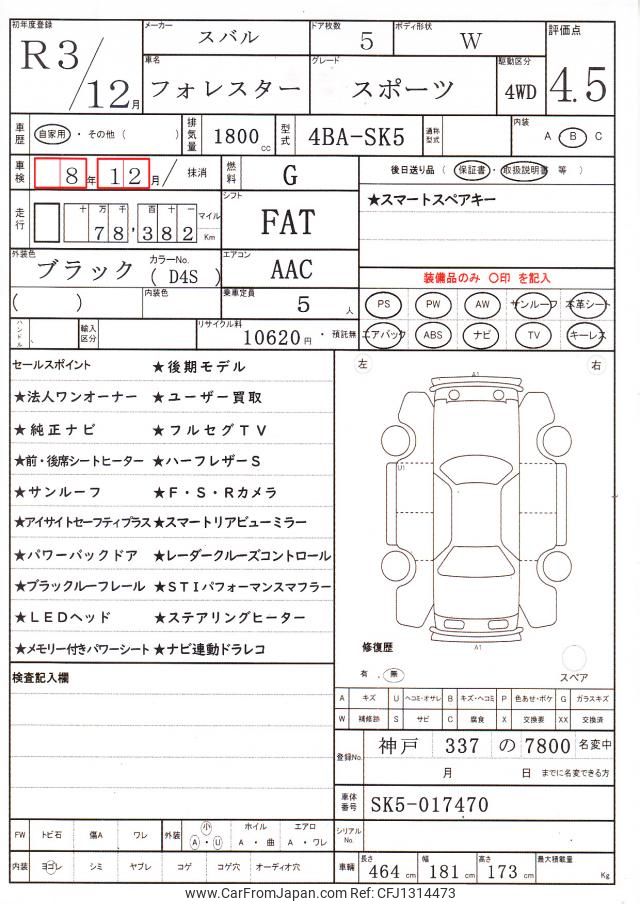 初年度登録 メーカー スバル ドア枚数 5 ボディ形状 W 評価点
R3/12月 車名 フォレスター グレード スポーツ 駆動区分 4WD 4.5
車歴 自家用・その他( ) 排気量 1800cc 型式 4BA-SK5 通称型式 内装 A B C
車検 8年12月/ 抹消 燃料 G 後日送り品(保証書・取扱説明書 等)
走行 十万千百十一 78,382 マイル Km シフト FAT ★スマートスペアキー
外装色 ブラック カラーNo. (D4S) エアコン AAC 装備品のみ 〇印 を記入
( ) 内装色 乗車定員 5人 PS PW AW サンルーフ 本革シート
ハンドル 輸入区分 リサイクル料 10620円・預託無 エアバック ABS ナビ TV キーレス
セールスポイント ★後期モデル 左 右
★法人ワンオーナー ★ユーザー買取 A1
★純正ナビ ★フルセグTV
★前・後席シートヒーター ★ハーフレザーS U1
★サンルーフ ★F・S・Rカメラ
★アイサイトセーフティプラス ★スマートリアビューミラー
★パワーバックドア ★レーダークルーズコントロール
★ブラックルーフレール ★STIパフォーマンスマフラー
★LEDヘッド ★ステアリングヒーター
★メモリー付きパワーシート ★ナビ連動ドラレコ 修復歴 A1
検査記入欄 有 . 無 スペア
A キズ U ヘコミ・オサレ B キズ・ヘコミ P 色あせ・ボケ G ガラスキズ
W 補修跡 S サビ C 腐食 X 交換要 XX 交換済
登録No. 神戸 337 の 7800 名変中
月 日 までに名変できる方
車体番号 SK5-017470
FW トビ石 傷A ワレ 外装 小 A・U ホイル A・曲 エアロ A・ワレ シリアルNo.
内装 ヨゴレ シミ ヤブレ コゲ コゲ穴 オーディオ穴 車輛 長さ 464cm 幅 181cm 高さ 173cm 最大積載量 Kg
www.CarFromJapan.com Ref: CFJ1314473